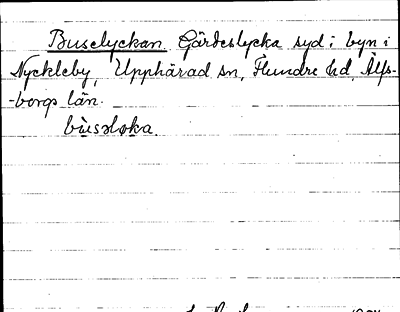 Buselyckan. Gärdeslycka syd i byn i
Nyckleby, Upphärad sn, Flundre hd, Älfs-
-borgs län.